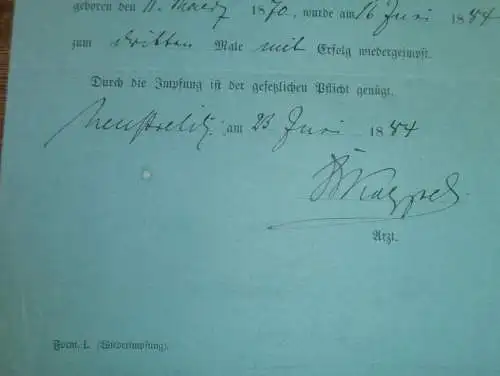 geboren den 11. Maerz 1870, wurde am 16 Juni 1884
zum dritten Male mit Erfolg wiedergeimpft.
Durch die Impfung ist der gesetzlichen Pflicht genügt.
Neustrelitz, am 23 Juni 1884
Arzt.
Form. I. (Wiederimpfung).